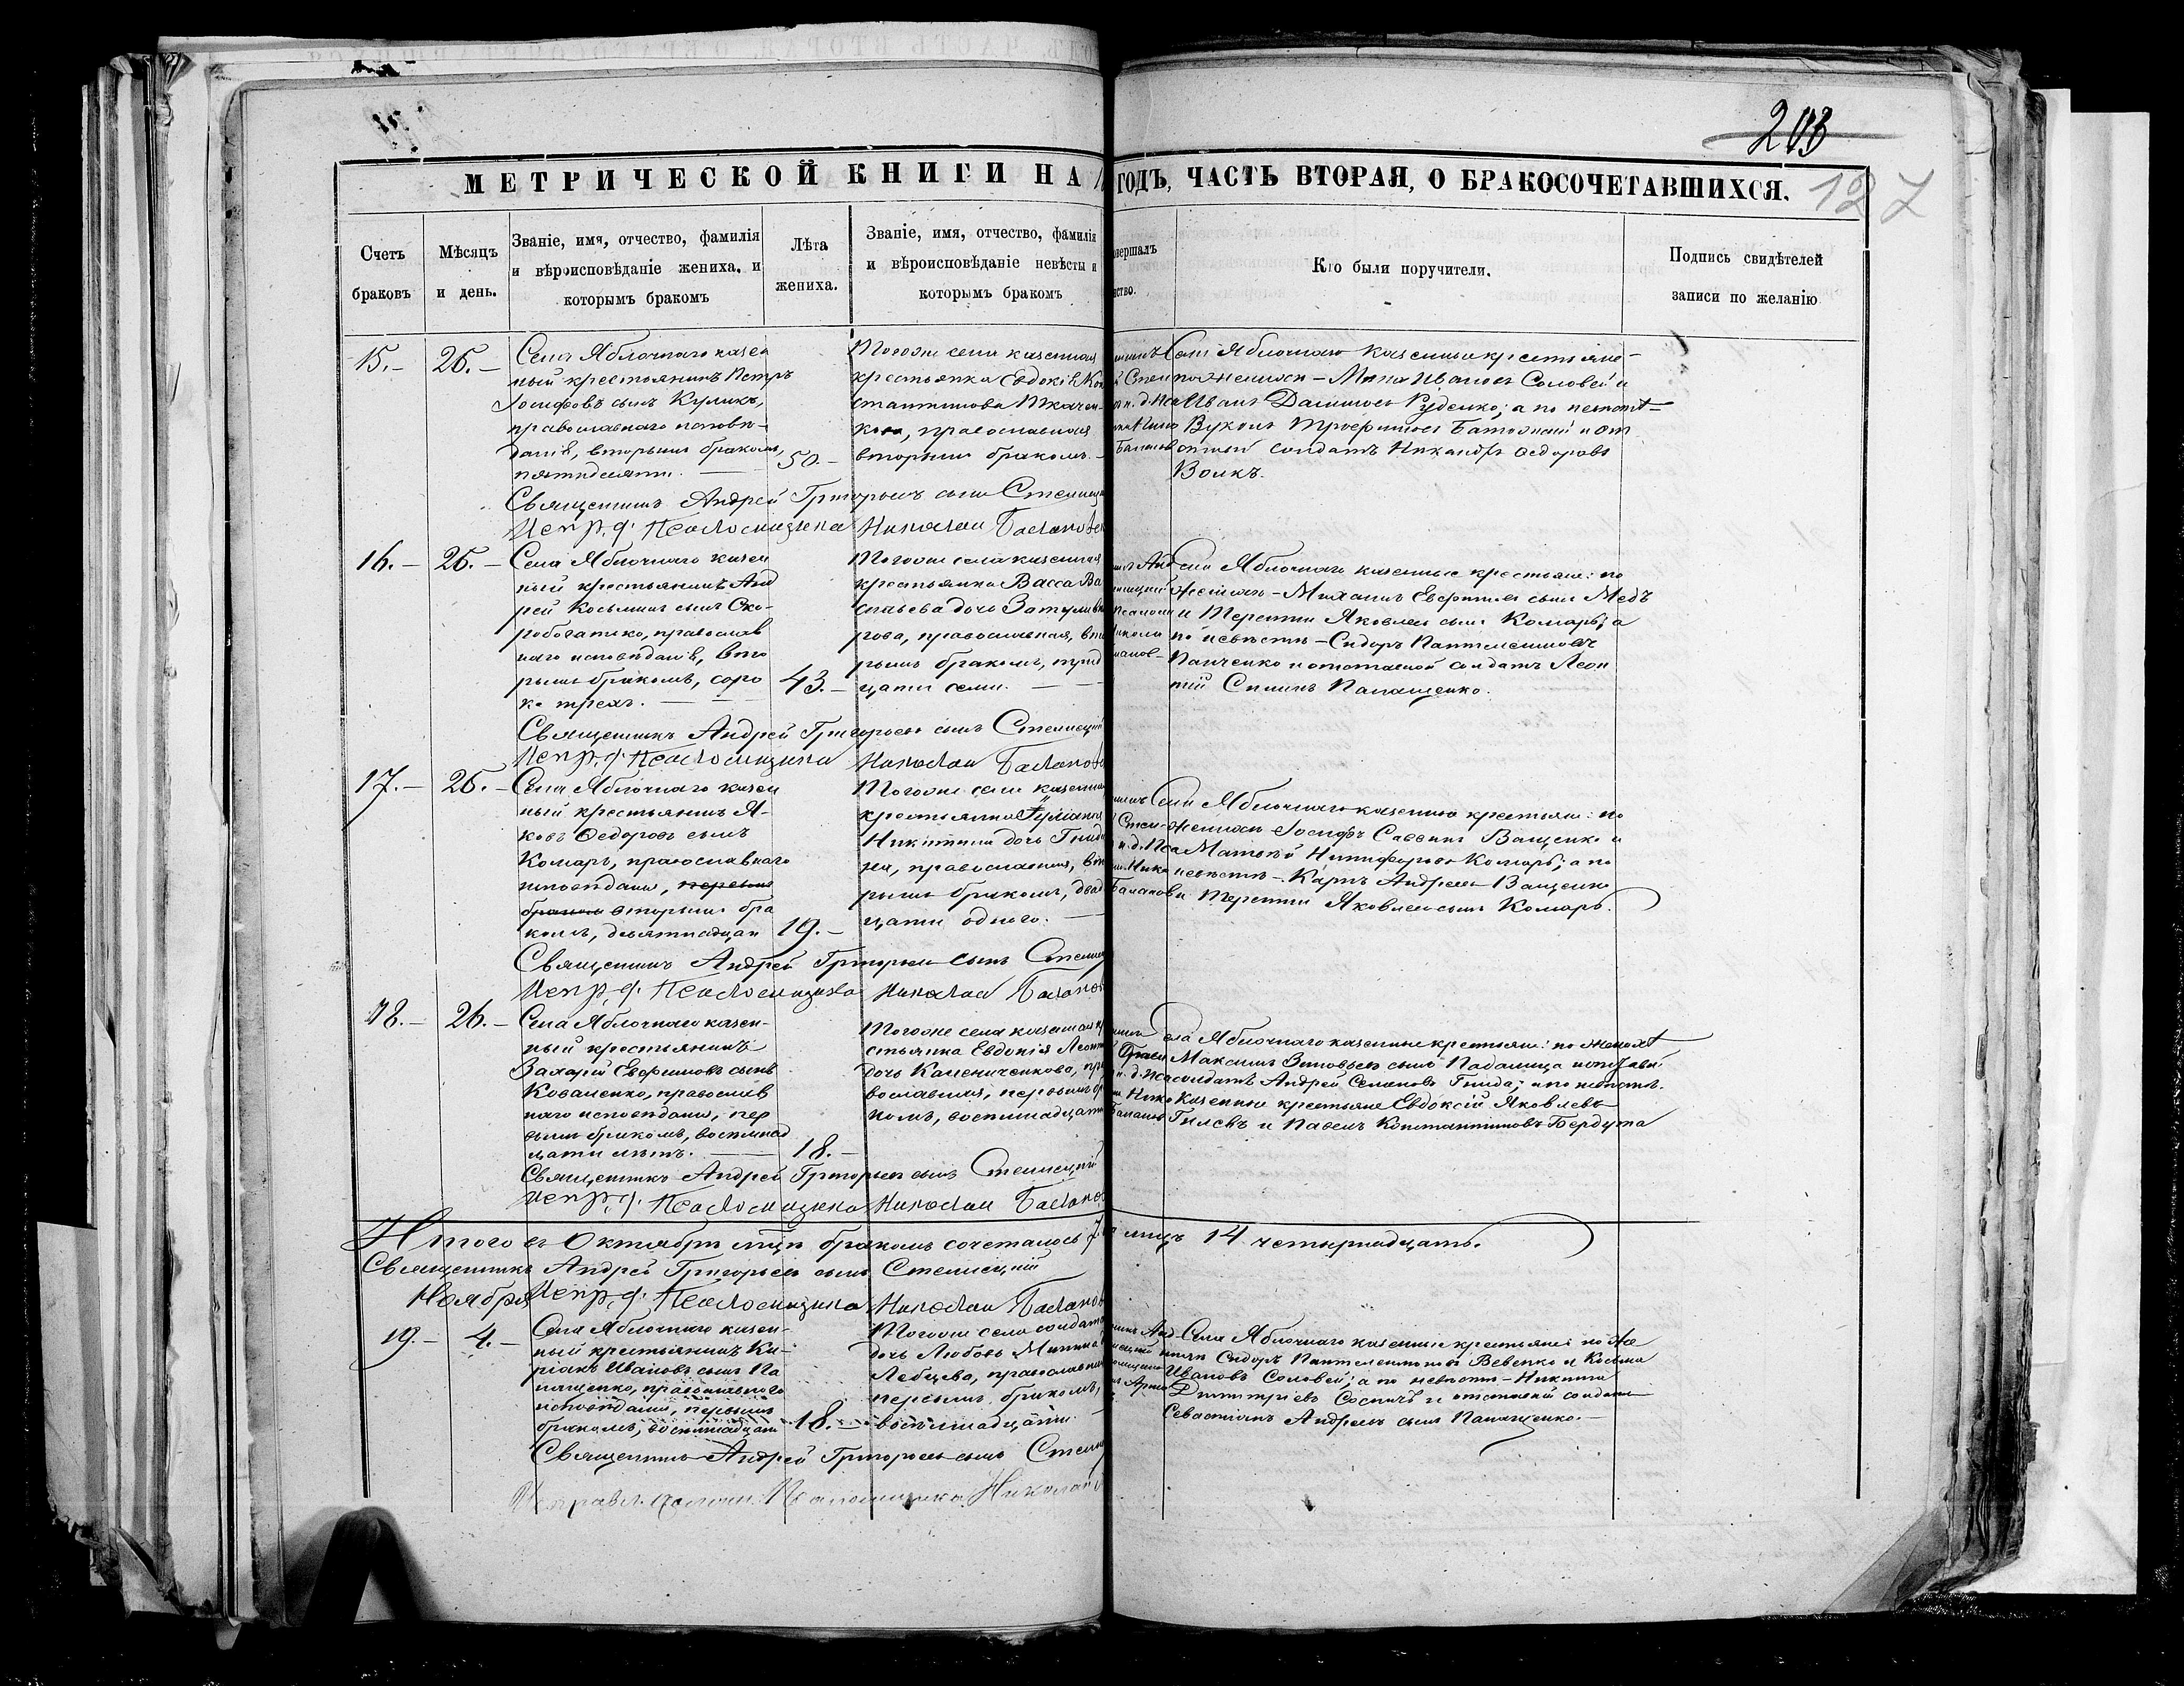 203
127
МЕТРИЧЕСКОЙ КНИГИ НА
ГОДЪ, ЧАСТЬ ВТОРАЯ, О БРАКОСОЧЕТАВШИХСЯ.
Счетъ
браковъ
Мѣсяцъ
и день.
Званіе, имя, отчество, фамилія
и вѣроисповѣданіе жениха, и
которымъ бракомъ
Лѣта
жениха.
Званіе, имя, отчество, фамилія
и вѣроисповѣданіе невѣсты и
которымъ бракомъ
Кто были поручители.
Подпись свидѣтелей
записи по желанію
15.-
26.-
Села Яблочнаго казен
ный крестьянинъ Петръ
Іосифовъ сынъ Куликъ,
православнаго исповѣ-
данія, вторымъ бракомъ,
пятидесяти.
50.-
Тогоже села казенная
крестьянка Евдокія Кон
стантинова Ткачен-
кова, православная
вторымъ бракомъ.
Села Яблочнаго казенные крестьяне-
по женихѣ - Мина Ивановъ Соловей и
Иванъ Даниловъ Руденко; а по невѣстѣ-
Вуколъ Трофимовъ Батожный и от
ставной солдатъ Никандръ Федоровъ
Волкъ.
Священникъ Андрей Григорьевъ сынъ
Испр. д. Псаломщика Николай
16.-
26.-
Села Яблочнаго казен
ный крестьянинъ Анд
рей Косьминъ сынъ Ско-
робогатько, православ
наго исповѣданія, вто
рымъ бракомъ, соро
ка трехъ.
43.-
Тогоже села казенная
крестьянка Васса Ва
сильева дочь
рова, православная, вто
рымъ бракомъ, трид
цати семи.
Села Яблочнаго казенные крестьяне: по
женихѣ - Михаилъ Евфимовъ сынъ
и Терентій Яковлевъ сынъ Комаръ; а
по невѣстѣ - Сидоръ Пантелеимоновъ
Панченко и отставной солдатъ Леон
тій Силинъ Папащенко.
Священникъ Андрей Григорьевъ сынъ
Испр. д. Псаломщика Николай
17.-
26.-
Села Яблочнаго казен
ный крестьянинъ Я-
ковъ Федоровъ сынъ
Комаръ, православнаго
исповѣданія, первымъ
бракомъ вторымъ бра
комъ, девятнадцати
19.-
Тогоже села казенная
крестьянка Іуліанія
Никитина дочь
на, православная, вто
рымъ бракомъ, двад
цати одного.
Села Яблочнаго казенные крестьяне: по
женихѣ Іосифъ Саввинъ Ващенко и
Матвѣй Никифоровъ Комаръ; а по
невѣстѣ - Карпъ Андреевъ Ващенко
и Терентій Яковлевъ сынъ Комаръ.
Священникъ Андрей Григорьевъ сынъ
Испр. д. Псаломщика Николай
18.-
26.-
Села Яблочнаго казен-
ный крестьянинъ
Захарій Евфимовъ сынъ
Коваленко, православ
наго исповѣданія, пер
вымъ бракомъ, восемнад
цати лѣтъ.
18.-
Тогоже села казенная кр
стьянка Евдокія Леонт
дочь Каменниченкова, пра
вославная, первымъ бра
комъ, восемнадцати
Села Яблочнаго казенные крестьяне: по женихѣ
Максимъ Зиновьевъ сынъ Падалица
солдатъ Андрей Семеновъ Гнида; а по невѣстѣ-
казенные крестьяне Евдоксій Яковлевъ
и Павелъ Константиновъ Бердута
Священникъ Андрей Григорьевъ сынъ
Испр. д. Псаломщика Николай
Итого въ Октябрѣ мцѣ бракомъ сочеталось 7
лицъ 14 четырнадцать.
Священникъ Андрей Григорьевъ сынъ
Ноября
Испр. д. Псаломщика Николай
19.-
4.-
Села Яблочнаго казен-
ный крестьянинъ Ки-
ріакъ Ивановъ сынъ Па
пащенко, православнаго
исповѣданія, первымъ
бракомъ, восемнадцати
18.-
Тогоже села солдатская
дочь Любовь Минина
Лебцева, православная
первымъ бракомъ,
восемнадцати
Села Яблочнаго казенные крестьяне по же
нихѣ Сидоръ Пантелеимоновъ Вевенко и Косьма
Ивановъ Соловей; а по невѣстѣ - Никита
Дмитріевъ и отставной солдатъ
Севастіанъ Андреевъ сынъ Папащенко.-
Священникъ Андрей Григорьевъ сынъ
Псаломщика Николай